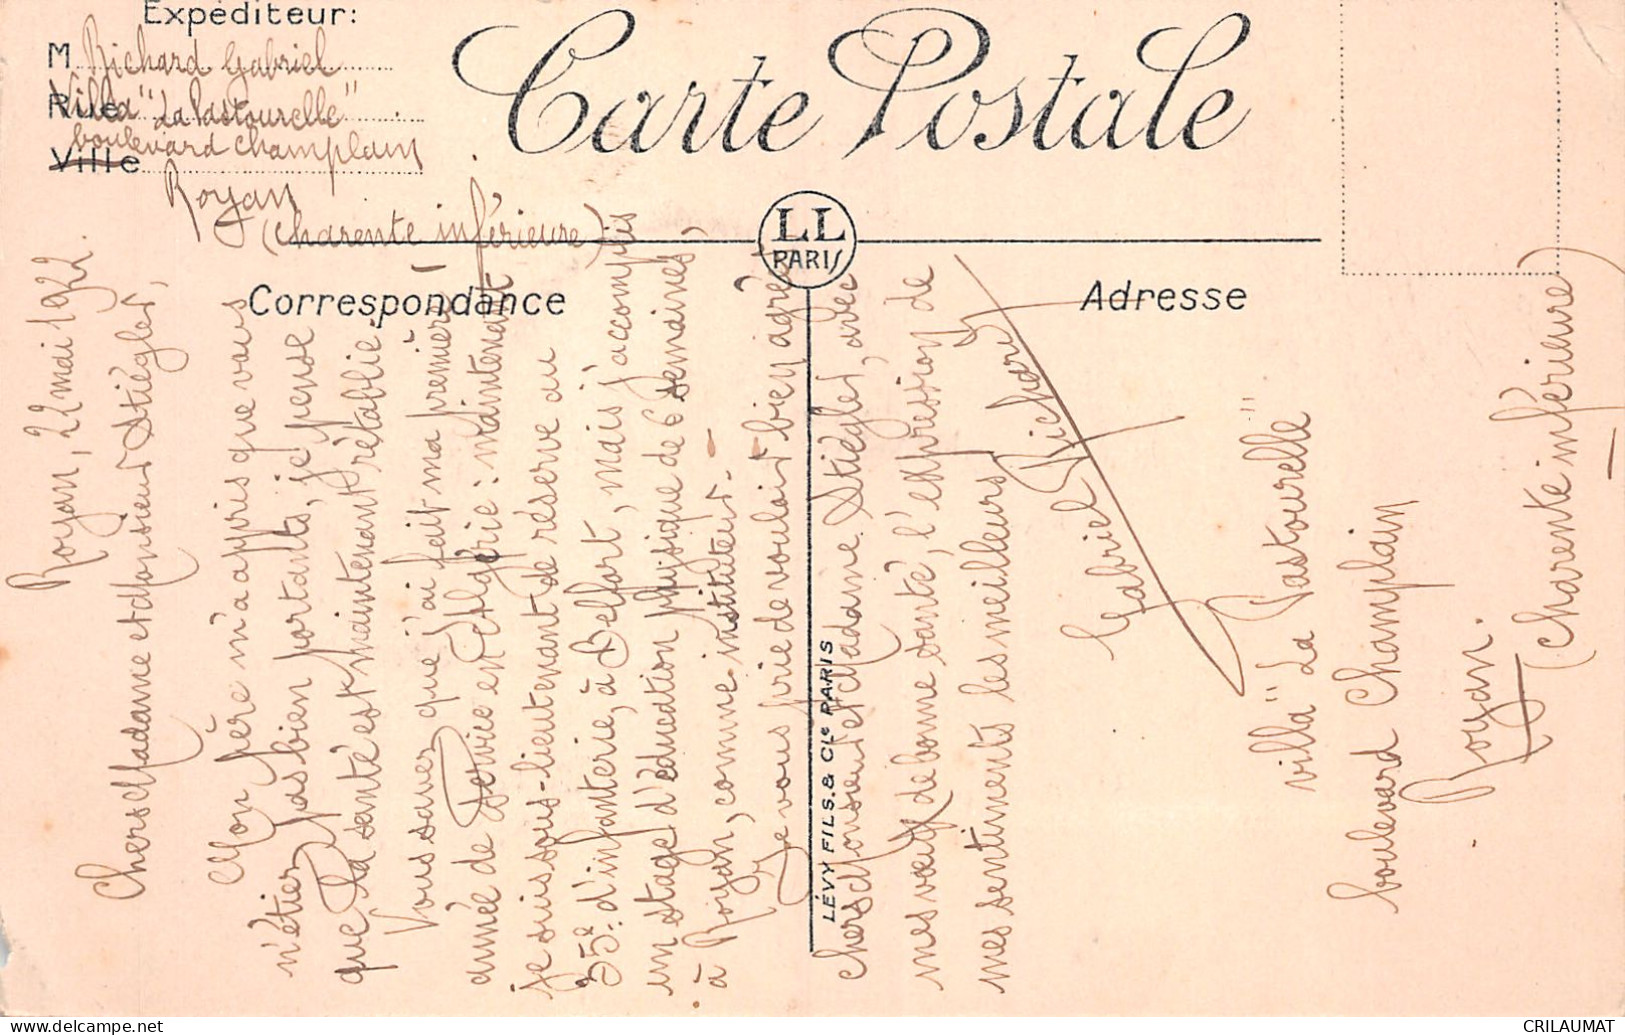 Expéditeur:
M Richard Gabriel
Rue Villa "La Pastourelle"
boulevard Champlain
Ville
Royan
(Charente inférieure)
Carte Postale
LL
PARIS
Correspondance
Adresse
LÉVY FILS & Cie PARIS
Royan, 22 mai 1922.
Chers Madame et Monsieur Stiégler,
Mon père m'a appris que vous
n'étiez pas bien portants, je pense
que la santé est maintenant rétablie.
Vous savez que j'ai fait ma première
année de service en Algérie : maintenant
je suis sous-lieutenant de réserve au
35e d'infanterie, à Belfort, mais j'accomplis
un stage d'éducation physique de 6 semaines,
à Royan, comme instituteur.
Je vous prie de vouloir bien agréer
chers Monsieur et Madame Stiégler, avec
mes vœux de bonne santé, l'expression de
mes sentiments les meilleurs
Gabriel Richard
villa "La Pastourelle"
boulevard Champlain
Royan.
(Charente inférieure)
CRILAUMAT